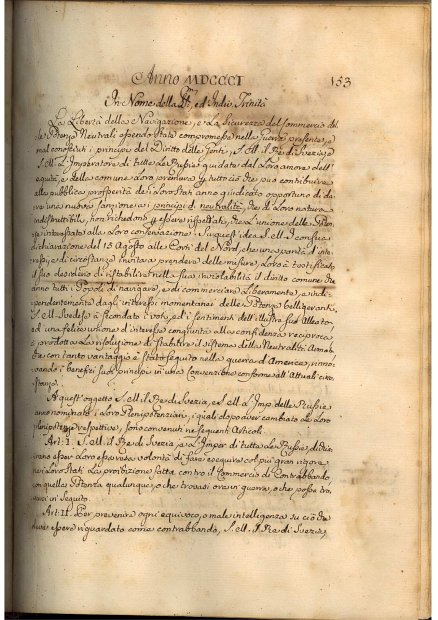 Anno MDCCCI
153
In Nome della SSma, ed Indiv. Trinità
La Libertà della Navigazione, e la Sicurezza del Commercio del
le Potenze Neutrali essendo state compromesse nella Guerra presente, e
mal conosciuti i principi del Diritto delle Genti, S. M. il Re di Svezia, e
S. M. L'Imperatore di tutte le Russie guidate dal Loro amore dell'
equità, e della comune Loro premura p. tutto ciò che può contribuire
alla pubblica prosperità dei Loro Stati anno giudicato opportuno di da
re una nuova sanzione ai principj di neutralità, che di Loro natura
indistruttibili, non richiedono p. essere rispettati, che l'unione delle Poten
ze interessate alla Loro conservazione. Su quest'idea S. M. I. con sua
dichiarazione del 15 Agosto alle Corti del Nord, che una parità d'inte
ressi, e di circostanze invitava a prendere delle misure, Loro à testificato
il suo desiderio di ristabilire nella sua inviolabilità il diritto comune che
anno tutti i Popoli di navigare, e di commerciare Liberamente, e indi
pendentemente dagli interessi momentanei delle Potenze belligeranti.
S. M. Svedese à secondato i voti, ed i sentimenti dell'illustre suo Alleato
ed una felice unione d'interessi congiunta alla confidenza reciproca
à prodotta la risoluzione di stabilire il sistema della Neutralità Armata
che con tanto vantaggio è stato seguito nella guerra d'America, rinno
vando i benefizi suoi principj in una Convenzione conforme all'Attuali circo
stanze.
A quest'oggetto S. M. il Re di Svezia, e S. M. L'Imp. delle Russie
anno nominati i Loro Plenipotenziari, i quali dopo aver cambiate Le Loro
plenipotenze respettive, sono convenuti ne seguenti Articoli.
Art: I. S. M. il Re di Svezia, e L'Imper. di tutte Le Russie, dichia
rano esser Loro espressa volontà di fare eseguire col più gran rigore
nei Loro Stati La proibizione fatta contro il Commercio di Contrabbando,
con quella Potenza qualunque, o che trovasi ora in guerra, o che possa tro
varvisi in Seguito.
Art: II. Per prevenire ogni equivoco, o male intelligenza su ciò che
dovrà essere riguardato come contrabbando, S. M. il Re di Svezia,